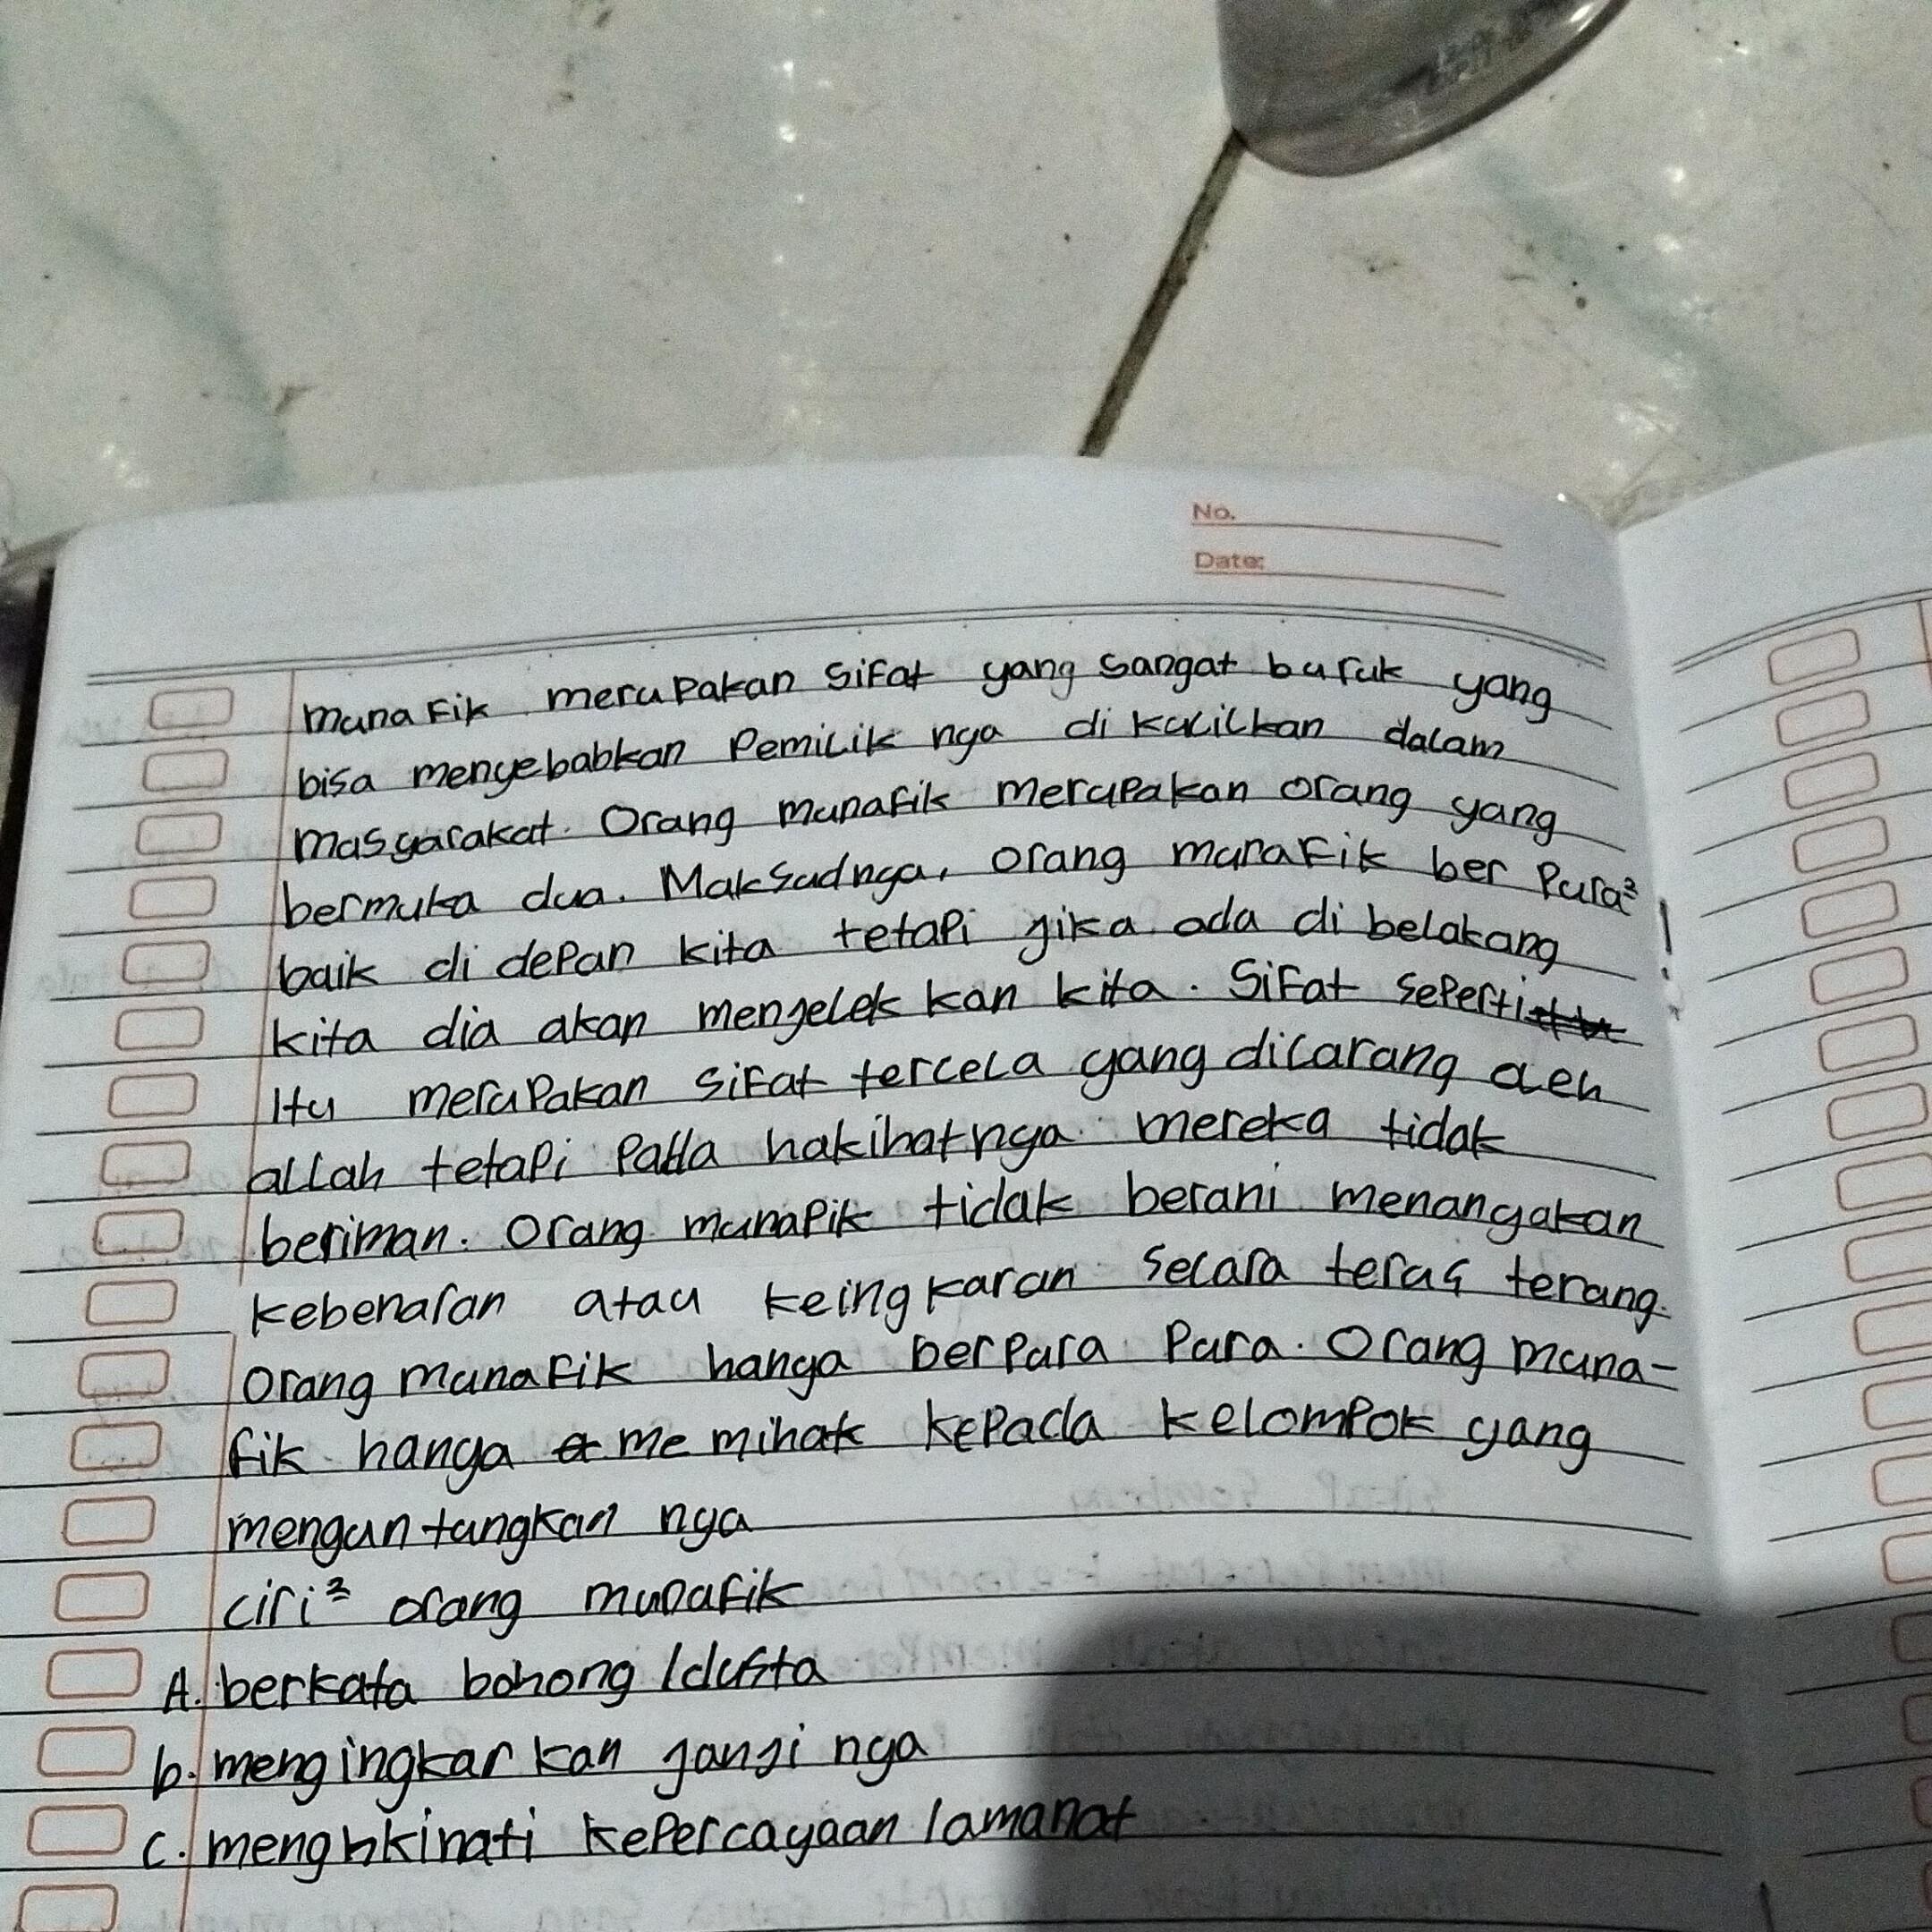 No.
Date:
munafik merupakan sifat yang sangat buruk yang
bisa menyebabkan pemilik nya di kucilkan dalam
masyarakat. Orang munafik merupakan orang yang
bermuka dua. Maksudnya, orang munafik ber pura²
baik di depan kita tetapi jika ada di belakang
kita dia akan menjelek kan kita. Sifat seperti
itu merupakan sifat tercela yang dilarang oleh
allah tetapi pada hakihatnya mereka tidak
beriman. Orang munapik tidak berani menangakan
kebenaran atau keingkaran secara terus terang.
Orang munafik hanya berpura pura. Orang muna-
fik hanya me mihak kepada kelompok yang
mengun tungkan nya
ciri² orang munafik
A. berkata bohong / dusta
b. mengingkar kan janji nya
c. menghkinati kepercayaan / amanat